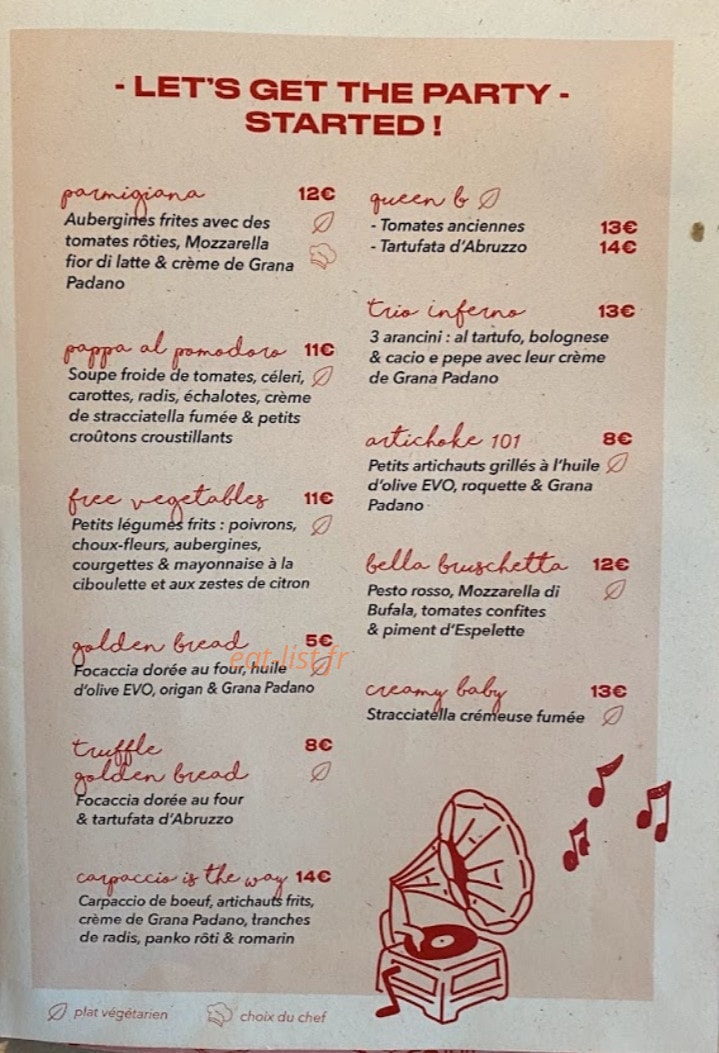 - LET'S GET THE PARTY -
STARTED !
parmigiana 12€
Aubergines frites avec des
tomates rôties, Mozzarella
fior di latte & crème de Grana
Padano
pappa al pomodoro 11€
Soupe froide de tomates, céleri,
carottes, radis, échalotes, crème
de stracciatella fumée & petits
croûtons croustillants
free vegetables 11€
Petits légumes frits : poivrons,
choux-fleurs, aubergines,
courgettes & mayonnaise à la
ciboulette et aux zestes de citron
golden bread 5€
eat-list.fr
Focaccia dorée au four, huile
d'olive EVO, origan & Grana Padano
truffle 8€
golden bread
Focaccia dorée au four
& tartufata d'Abruzzo
carpaccio is the way 14€
Carpaccio de boeuf, artichauts frits,
crème de Grana Padano, tranches
de radis, panko rôti & romarin
queen b
- Tomates anciennes 13€
- Tartufata d'Abruzzo 14€
trio inferno 13€
3 arancini : al tartufo, bolognese
& cacio e pepe avec leur crème
de Grana Padano
artichoke 101 8€
Petits artichauts grillés à l'huile
d'olive EVO, roquette & Grana
Padano
bella bruschetta 12€
Pesto rosso, Mozzarella di
Bufala, tomates confites
& piment d'Espelette
creamy baby 13€
Stracciatella crémeuse fumée
plat végétarien choix du chef